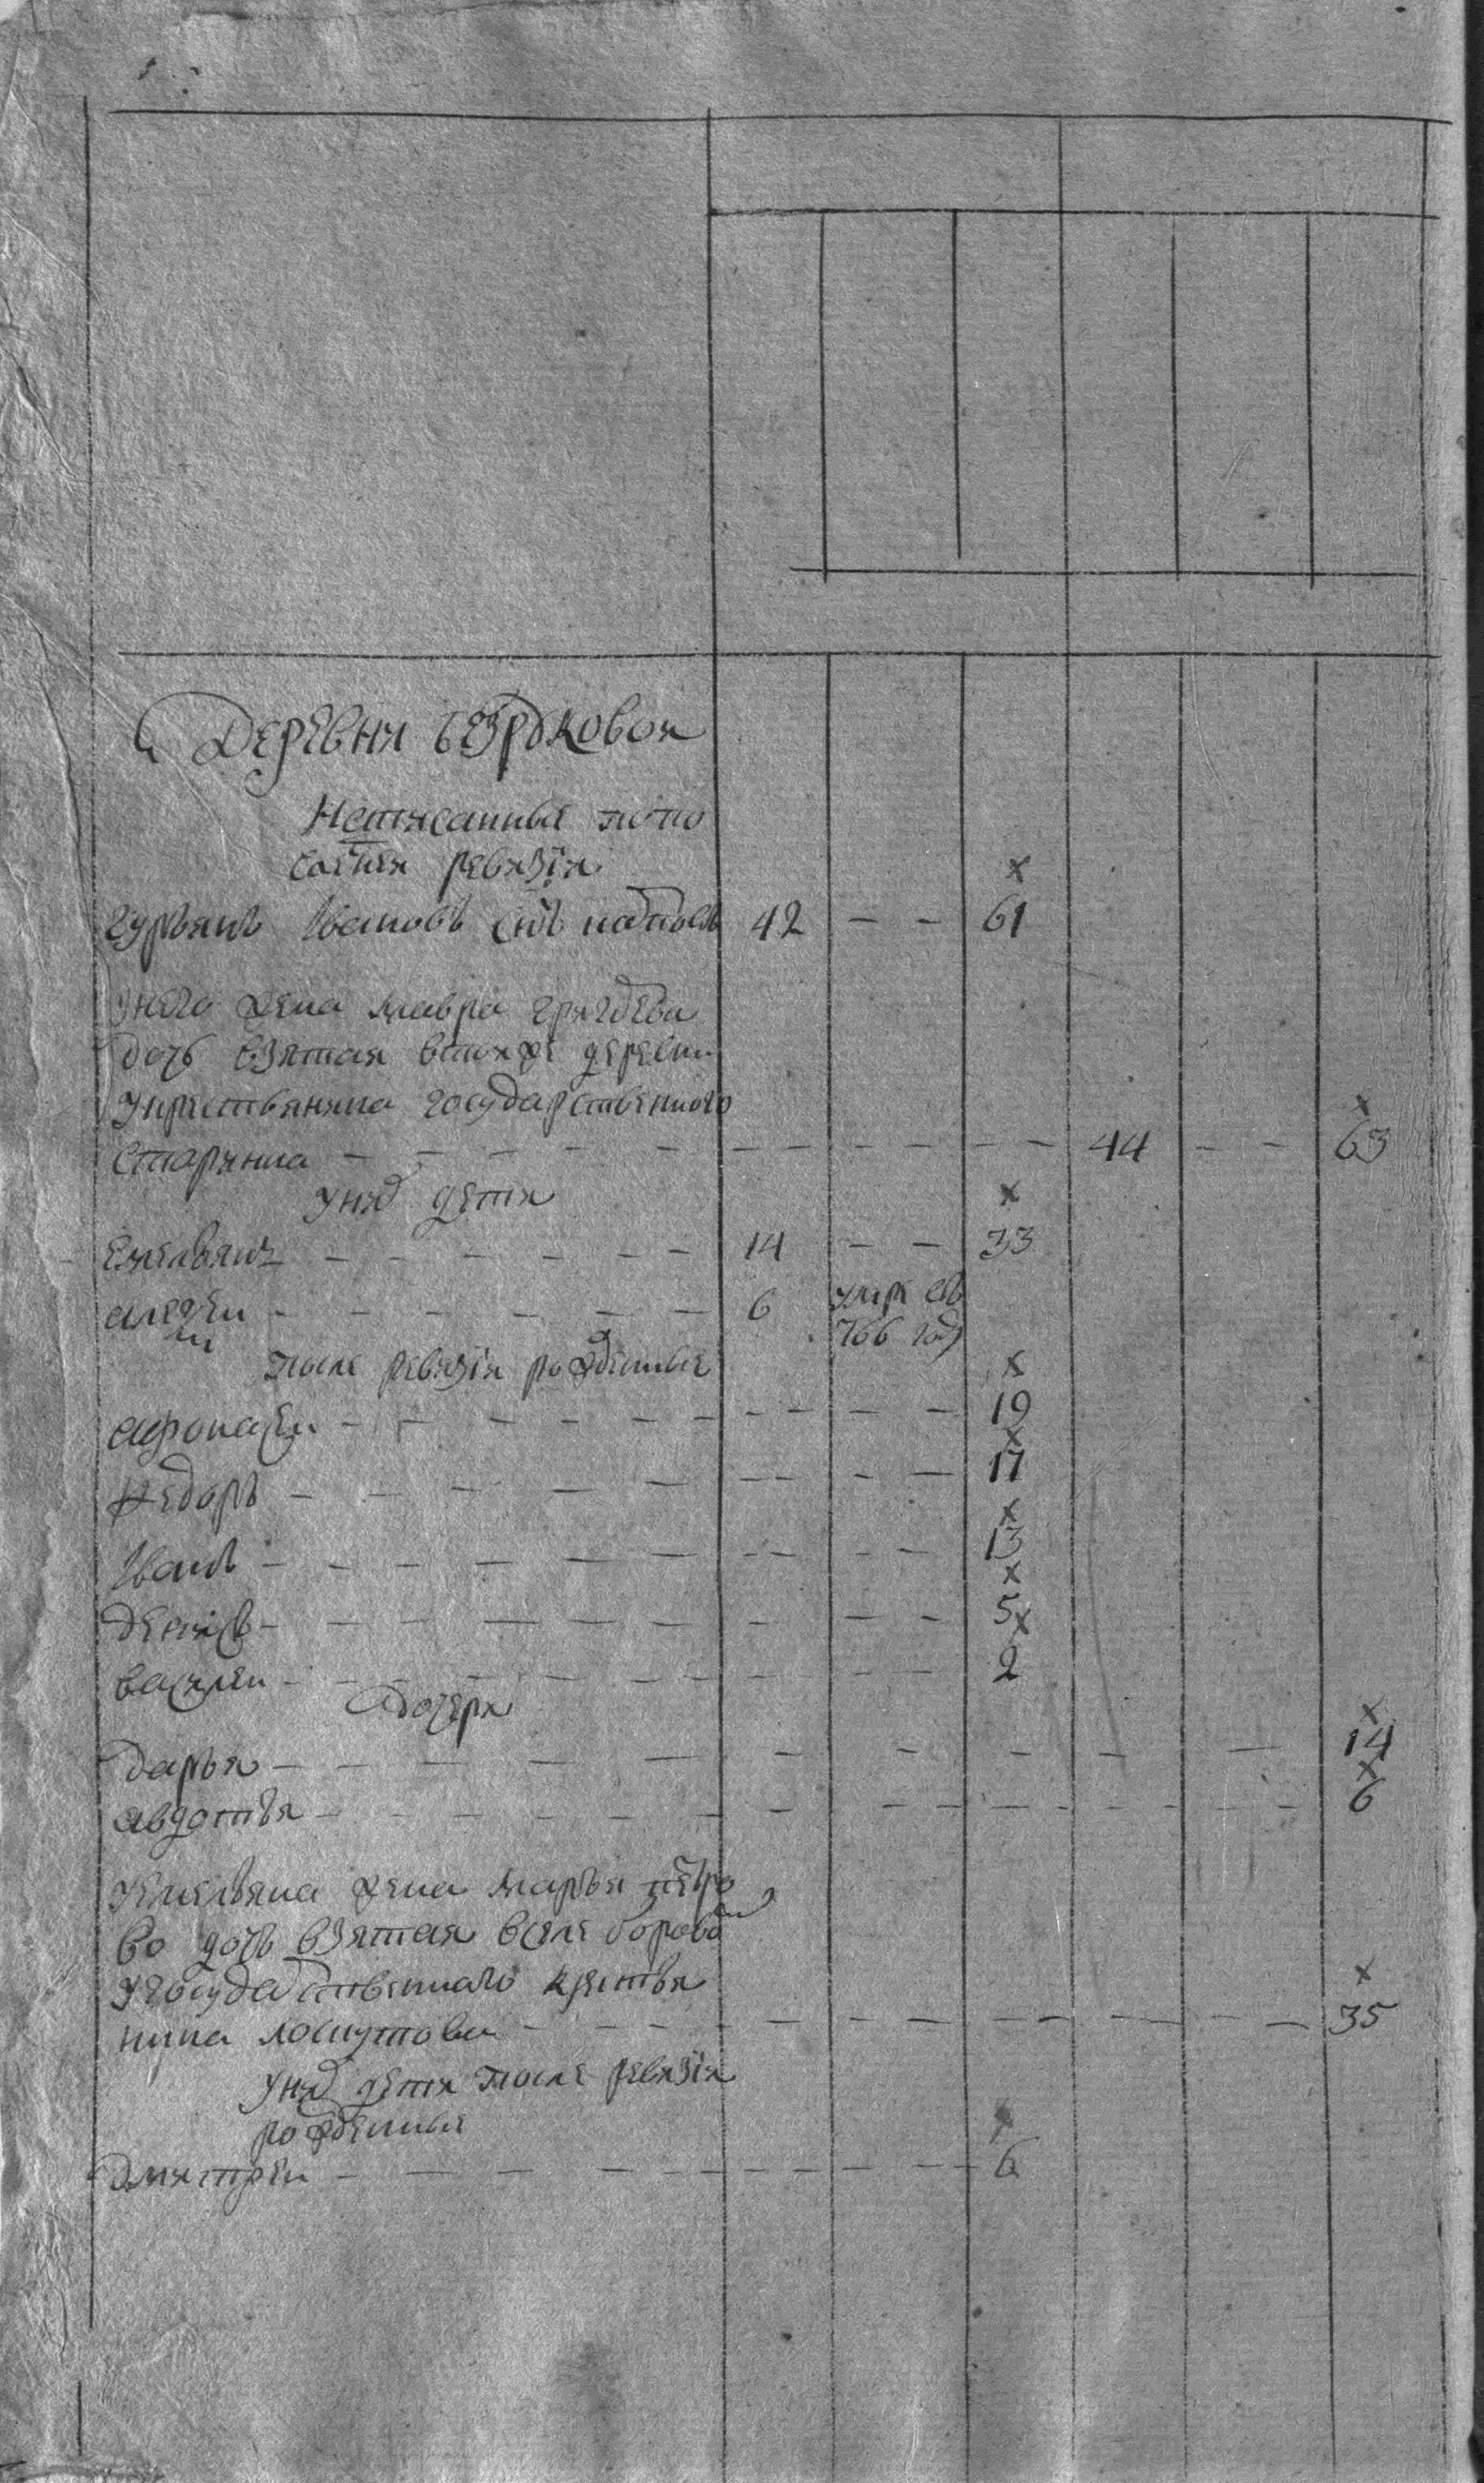 Деревня безрукова
Неписанныя попо
следней ревизiи
гурьянъ Ивановъ снъ 42 — — 61
унего жена мавра
дочь взятая втойже деревни
укрестьянина государственного
старичка — — — — — — — 44 — — 63
унихъ дети
Емельянъ — — — — — — 14 — — 33
андреи — — — — — — 6 умре въ
766 году
после ревизiи рожденные
афонасеи — — — — — — 19
федоръ — — — — — — — 17
Иванъ — — — — — — — 13
денисъ — — — — — — — 5
василеи — — — — — — — 2
дочери
дарья — — — — — — — 14
авдотья — — — — — — — 6
уемельяна жена марья петро
ва дочь взятая вселе
угосударственнаго крестья
нина лоскутова — — — — — — 35
унихъ дети после ревизiи
рожденные
дмитреи — — — — — — — 6